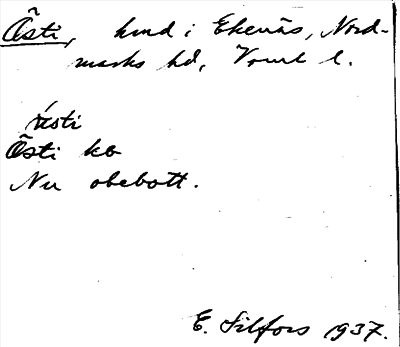 Östi, hmd i Ekenäs, Nord-
marks hd, Vrml l.
östi
Östi kb
Nu obebott.
E. Silfors 1937.